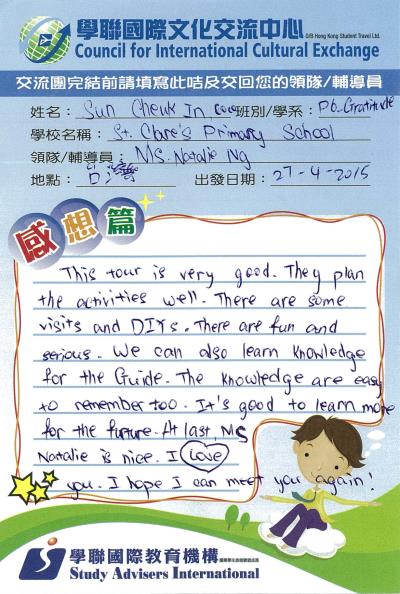 學聯國際文化交流中心 O/B Hong Kong Student Travel Ltd.
Council for International Cultural Exchange
交流團完結前請填寫此咭及交回您的領隊/輔導員
姓名: Sun Cheuk In, coco 班別/學系: P6. Gratitude
學校名稱: St. Clare's Primary School
領隊/輔導員: MS. Natalie Ng
地點: 台灣 出發日期: 27-4-2015
感想篇
This tour is very good. They plan
the activities well. There are some
visits and DIYs. There are fun and
serious. We can also learn knowledge
for the Guide. The knowledge are easy
to remember too. It's good to learn more
for the furture. At last, MS
Natalie is nice. I love
you. I hope I can meet you again!
學聯國際教育機構
Study Advisers International